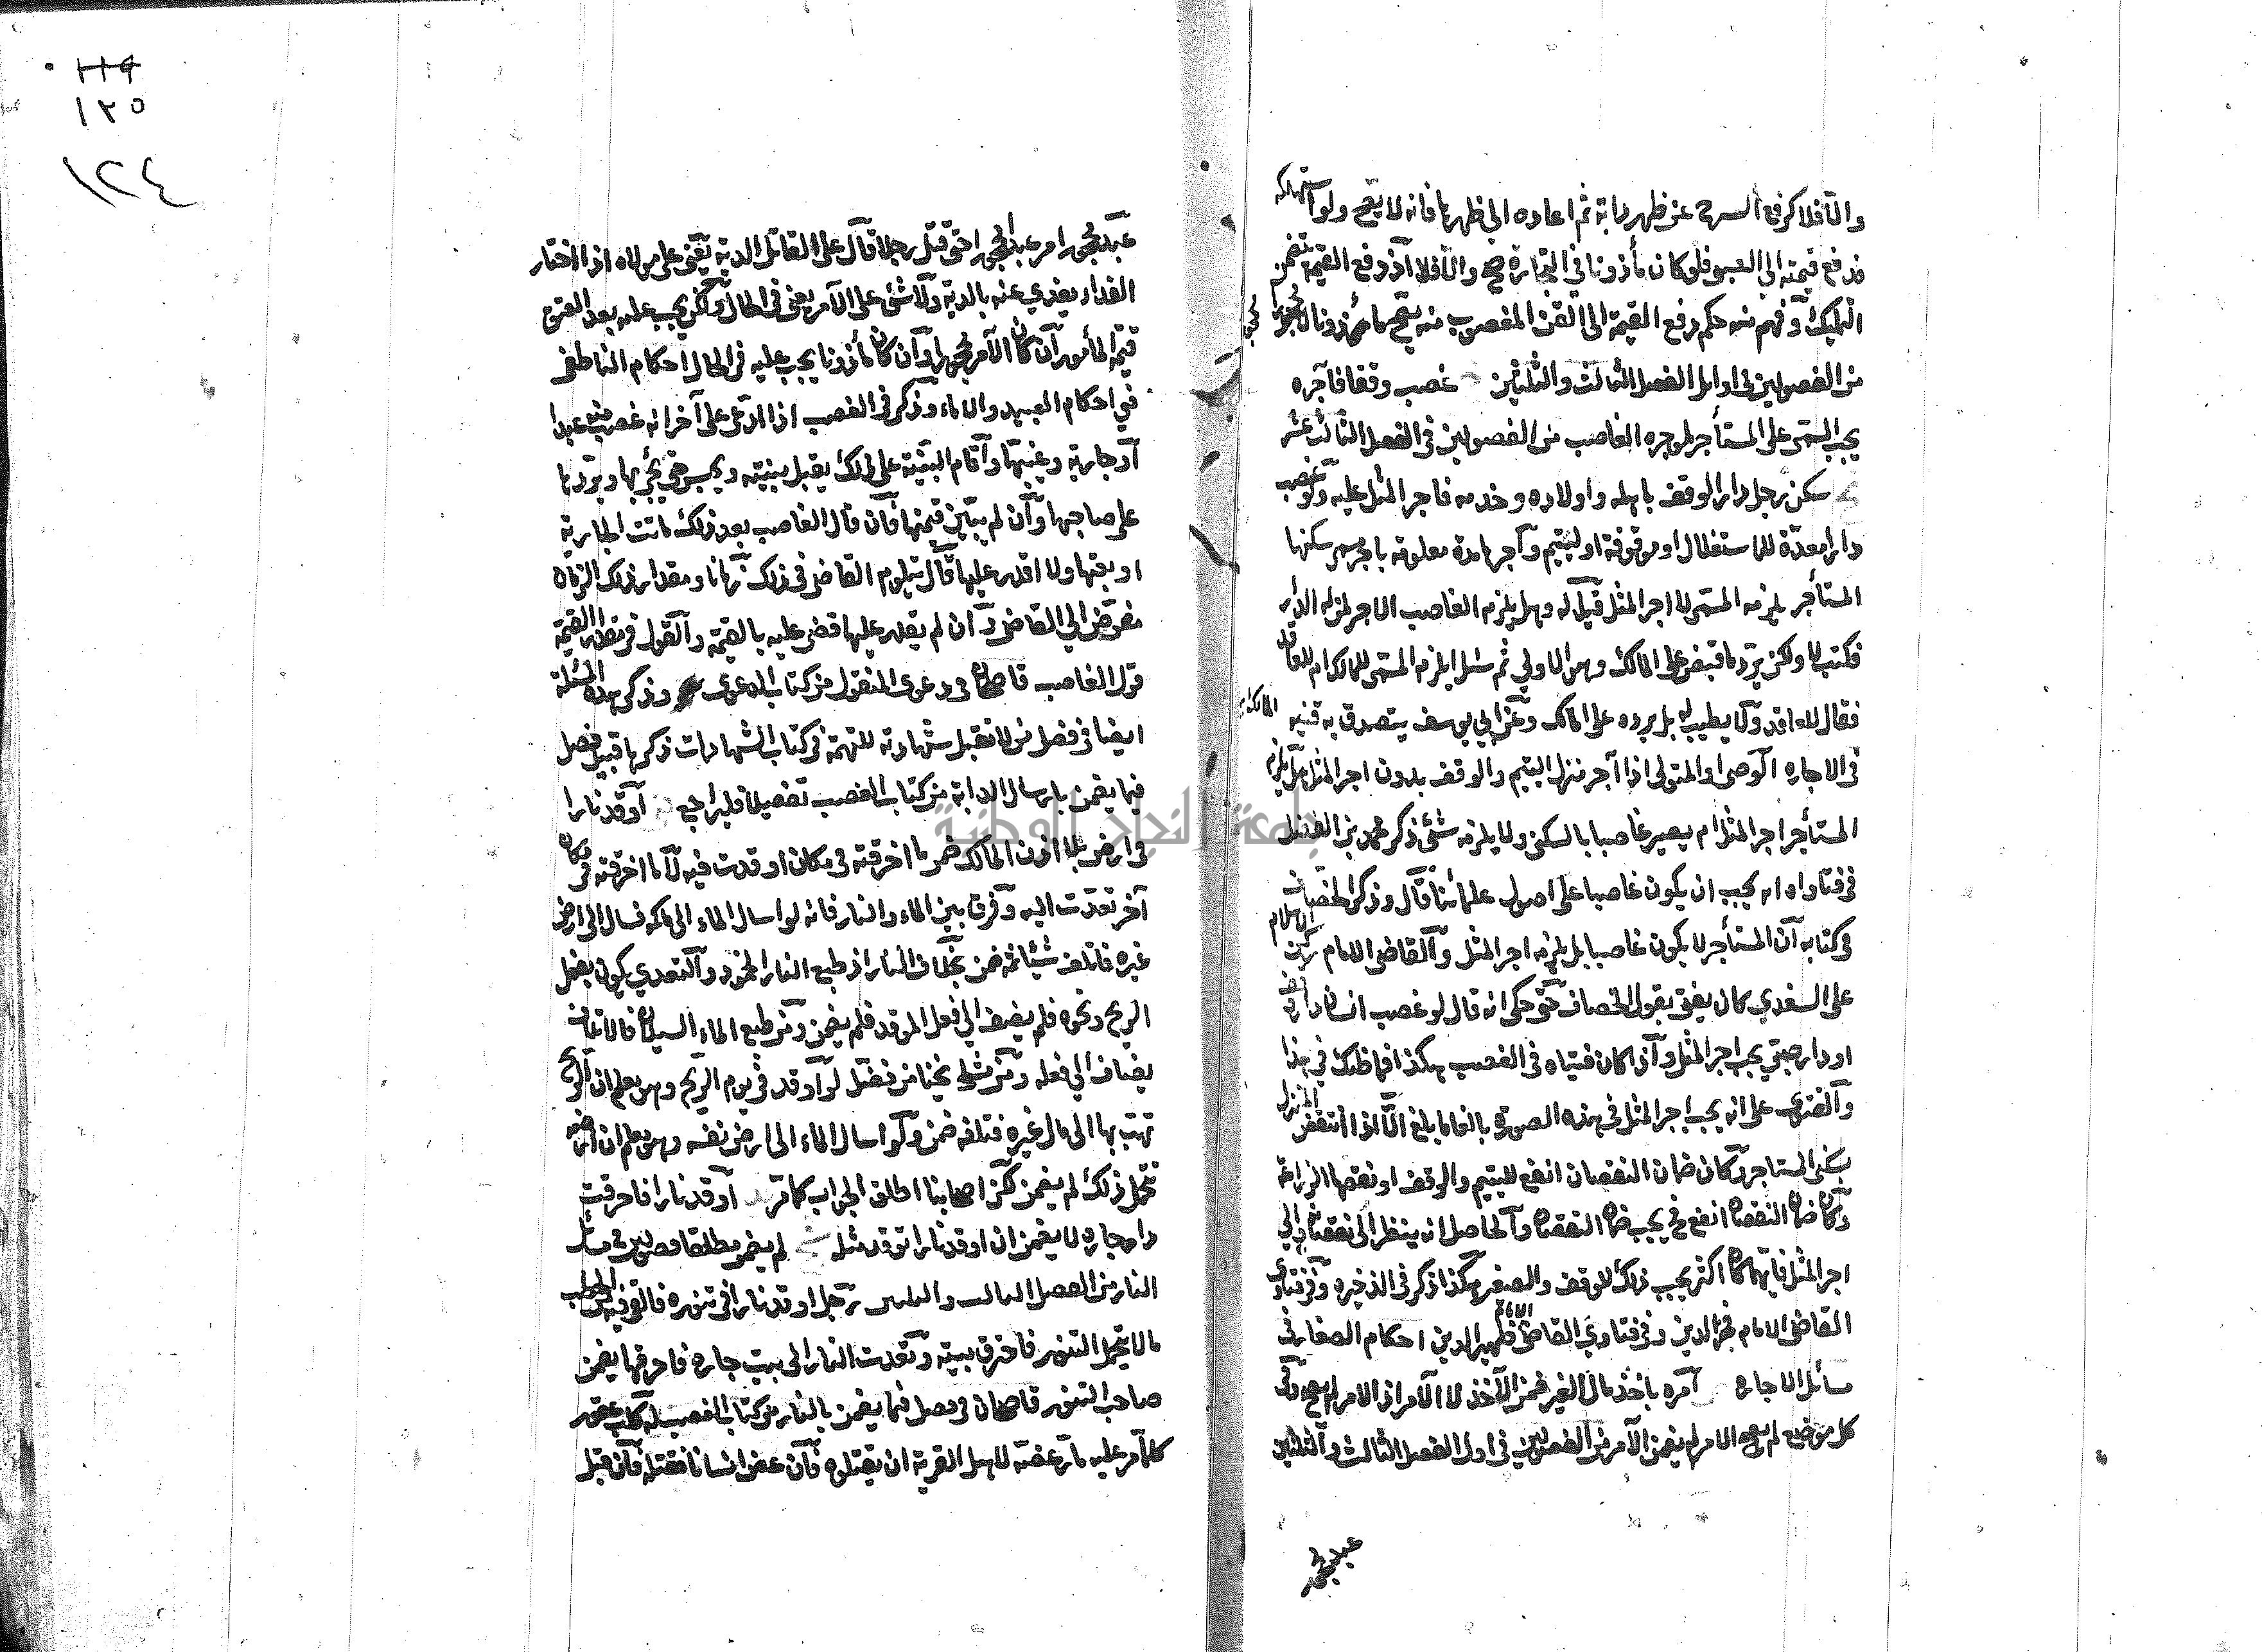 والا فلا كرفع السرج عن ظهر دابة ثم اعاده الى ظهرها فانه لا يصح ولو استهلكه
فدفع قيمته الى الصبي فلو كان مأذونا في التجارة صح والا فلا اذ دفع القيمة تضمن
التمليك وفهم منه حكم دفع القيمة الى القن المغصوب منه يصح مأذونا لا محجورا
من الفصولين في اوائل الفصل الثالث والثلثين غصب وقفا فآجره
يجب المسمى على المستأجر لموجره الغاصب من الفصولين في الفصل الثالث عشر
سكن رجل دار الوقف باهله واولاده وخدمه فاجر المثل عليه ولو غصب
دارا معدة للاستغلال او موقوفة او ليتيم وآجرها مدة معلومة باجر مسمى سكنها
المستأجر يلزمه المسمى لا اجر المثل قيل له وهل يلزم الغاصب الاجر لمن له الدار
فكتب لا ولكن يرد ما قبض على المالك وهو الاولى ثم سئل ايلزم المسمى للمالك ام للعاقد
فقال للعاقد ولا يطيب له بل يرده على المالك وعن ابي يوسف يتصدق به قنيه
في الاجاره الوصي او المتولى اذا آجر منزل اليتيم والوقف بدون اجر المثل هل يلزم
المستأجر اجر المثل ام يصير غاصبا بالسكنى ولا يلزمه شئ ذكر محمد بن الفضل
في فتاواه انه يجب ان يكون غاصبا على اصول علمائنا قال وذكر الخصاف
في كتابه ان المستأجر لا يكون غاصبا بل يلزمه اجر المثل والقاضى الامام ركن الاسلام
على السغدي كان يفتى بقول الخصاف حتى حكى انه قال لو غصب انسان دار وقف
او دار صبي يجب اجر المثل واذا كان فتياه في الغصب هكذا فما ظنك في هذا
والفتوى على انه يجب اجر المثل في هذه الصورة بالغا ما بلغ الا اذا انتقض المنزل
بسكنى المستاجر وكان ضمان النقصان انفع لليتيم والوقف او نقصها الزراعة
وكان ضمان النقصان انفع فح يجب ضمان النقصان والحاصل انه ينظر الى نقصان والى
اجر المثل فايهما كان اكثر يجب ذلك للوقف والصغير هكذا ذكر في الذخيره وفي فتاوى
القاضى الامام فخر الدين وفي فتاوي القاضى الامام ظهير الدين احكام الصغار في
مسائل الاجاره آمره باخذ مال الغير ضمن الآخذ لا الآمر اذ الامر لم يصح وفي
كل موضع لم يصح الامر لم يضمن الآمر من الفصولين في اول الفصل الثالث والثلثين
عبد محجور
١١٩
١٢٥
١٢٤
عبد محجور امر عبدا محجورا حتى قتل رجلا قال على القاتل الدية يعنى على مولاه اذا اختار
الفداء يفدي عنه بالدية ولا شئ على الآمر يعنى في الحال ولكن يجب عليه بعد العتق
قيمة المأمور ان كان الآمر محجورا وان كان مأذونا يجب عليه في الحال احكام الناطفى
في احكام العبيد والاماء وذكر في الغصب اذا ادعى على آخر انه غصب منه عبدا
او جارية وغيبها واقام البينة على ذلك يقبل بينته ويحبس حتى يجئ بها ويردها
على صاحبها وان لم يبين قيمتها فان قال الغاصب بعد ذلك ماتت الجارية
او بعتها ولا اقدر عليها قال يتلوم القاضى في ذلك زمانا ومقدار ذلك الزمان
مفوض الى القاضى وان لم يقدر عليها قضى عليه بالقيمة والقول في مقدار القيمة
قول الغاصب قاضيخان في دعوى المنقول من كتاب الدعوى وذكر هذه المسئلة
ايضا في فصل من لا تقبل شهادته للتهمة في كتاب الشهادات ذكرها قبيل فصل
فيما يضمن بارسال الدابة من كتاب الغصب تفصيلا فليراجع اوقد نارا
في ارض بلا اذن المالك ضمن ما احرقته في مكان اوقدت فيه لا ما احرقته في مكان
آخر تعدت اليه وفرق بين الماء والنار فانه لو اسال الماء الى ملكه فسال الى ارض
غيره فاتلف شيئا ثمه ضمن بخلاف النار اذ طبع النار الخمود والتعدي يكون بفعل
الريح ونحوه فلم يضف الى فعل الموقد فلم يضمن ومن طبع الماء السيلان فالاتلاف
يضاف الى فعله ومن مشايخنا من فصل لو اوقد في يوم الريح وهو يعلم ان الريح
تهب بها الى مال غيره فتلفه ضمن وكو اسال الماء الى ارض نفسه وهو يعلم ان ارضه
تحمل ذلك لم يضمن لكن اصحابنا اطلق الجواب كما مر اوقد نارا فاحرقت
دار جاره لا يضمن ان اوقد نارا توقد مثله لم يضمن مطلقا فصولين في مسائل
النار من الفصل الثالث والثلثين رجل اوقد نارا في تنوره فالقى فيه من الحطب
مالا يتحمل التنور فاحترق بيته وتعدت النار الى بيت جاره فاحرقها يضمن
صاحب التنور قاضيخان في فصل فيما يضمن بالنار من كتاب الغصب له كلب عقور
كلما مر عليه مار عضه لاهل القرية ان يقتلوه فان عض انسانا فقتله فان قبل
جامعة النجاح الوطنية